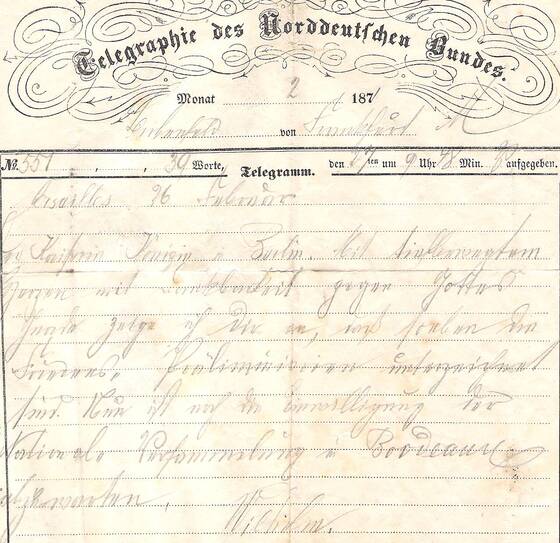 Telegraphie des Norddeutschen Bundes.
Monat 2 1871
von Frankfurt M
№ 551, 39 Worte, Telegramm. den 27ten um 9 Uhr 48 Min. aufgegeben.
Versailles 26 Februar
Kaiserin Königin in Berlin. Mit tiefbewegtem
Herzen mit Dankbarkeit gegen Gottes
Gnade zeige ich Dir an, daß soeben die
Friedens Präliminarien unterzeichnet
sind. Nun ist noch die Einwilligung der
Nationale Versammlung in Bordeaux
abzuwarten.
Wilhelm.